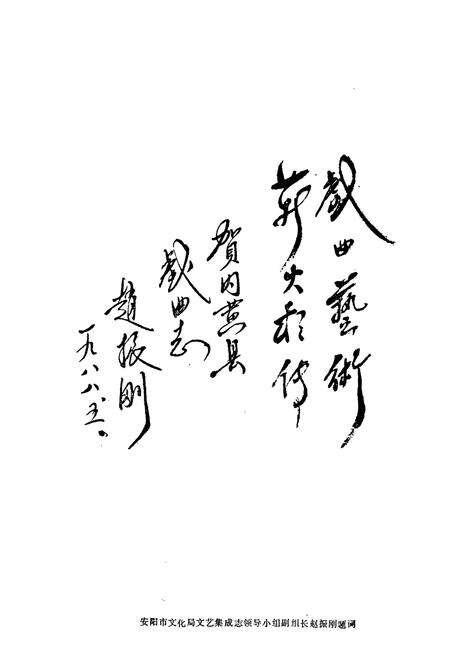 戲曲藝術
薪火相传
賀内黄县
戲曲志
趙振刚
一九八八.五.
安阳市文化局文艺集成志领导小组副组长赵振刚题词